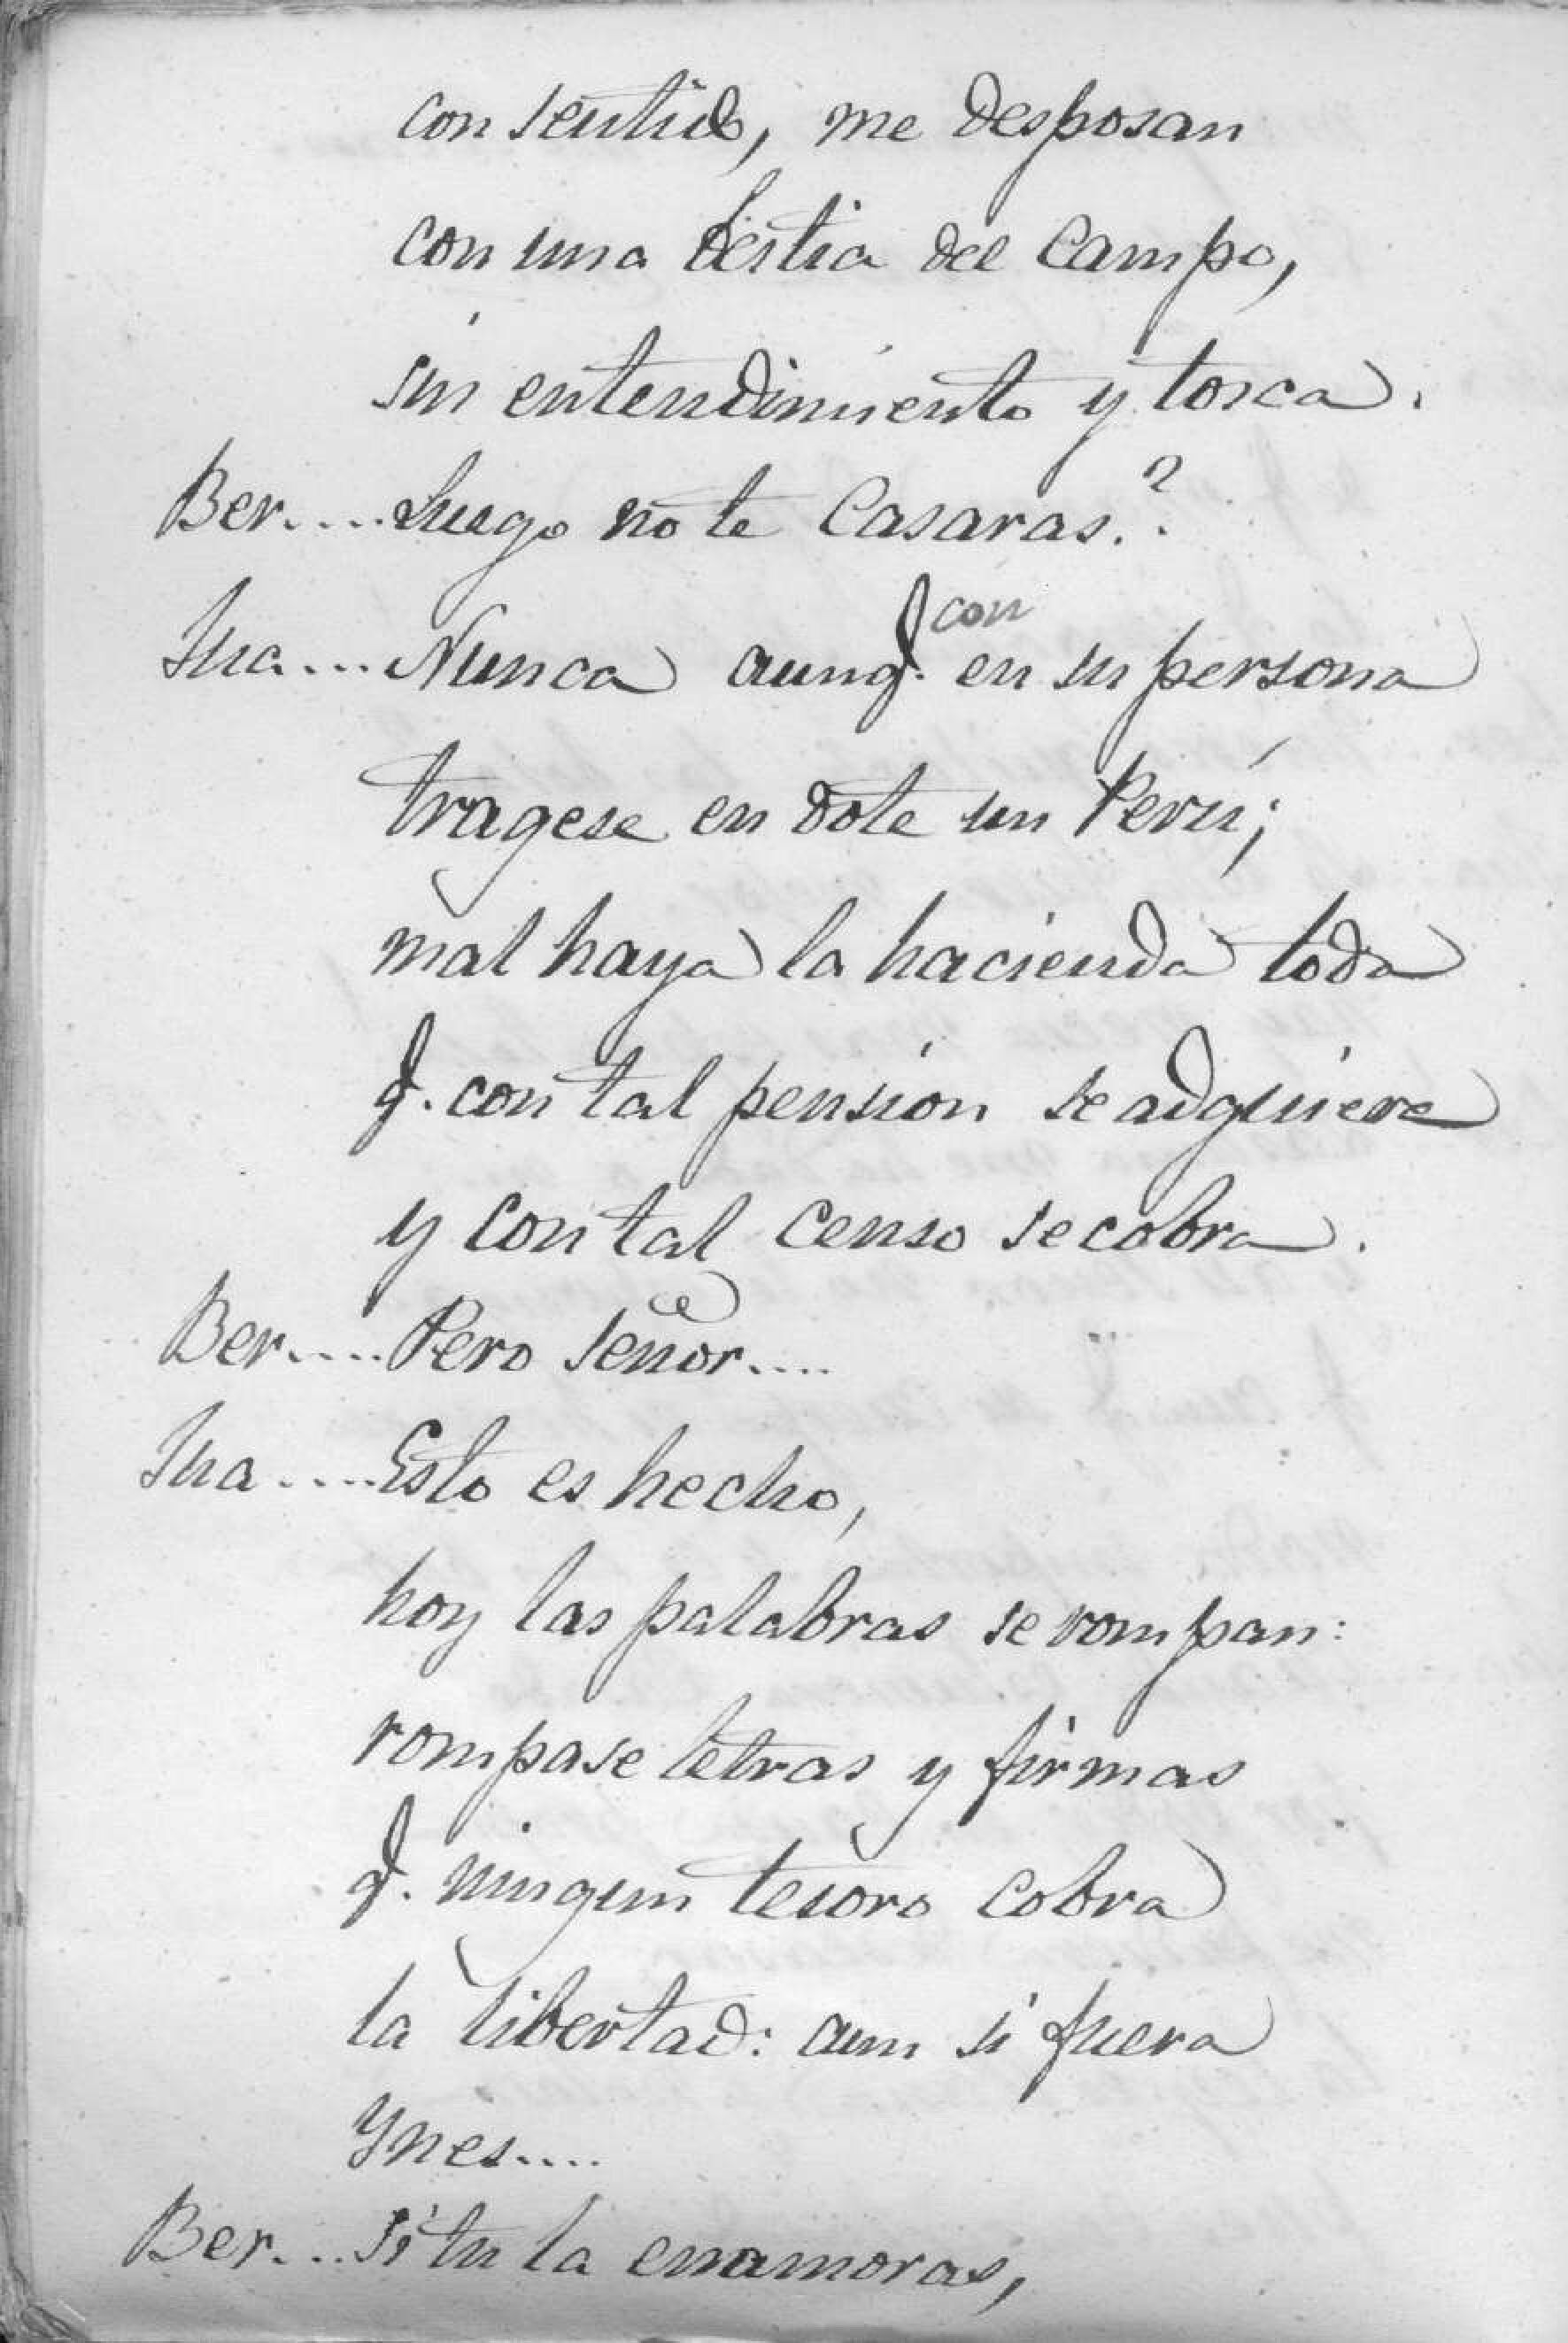 con sentido, me desposan
con una bestia del campo,
sin entendimiento y tosca.
Ber.... Luego no te Casaras.?
Jua... Nunca aunq. en su persona
con
tragese en dote un Perú;
mal haya la hacienda toda
q. con tal pension se adquiere
y con tal censo se cobra.
Ber.... Pero señor....
Jua.... Esto es hecho,
hoy las palabras se rompan:
rompase letras y firmas
q. ningun tesoro cobra
la libertad: aun si fuera
Ynes....
Ber... Si tu la enamoras,